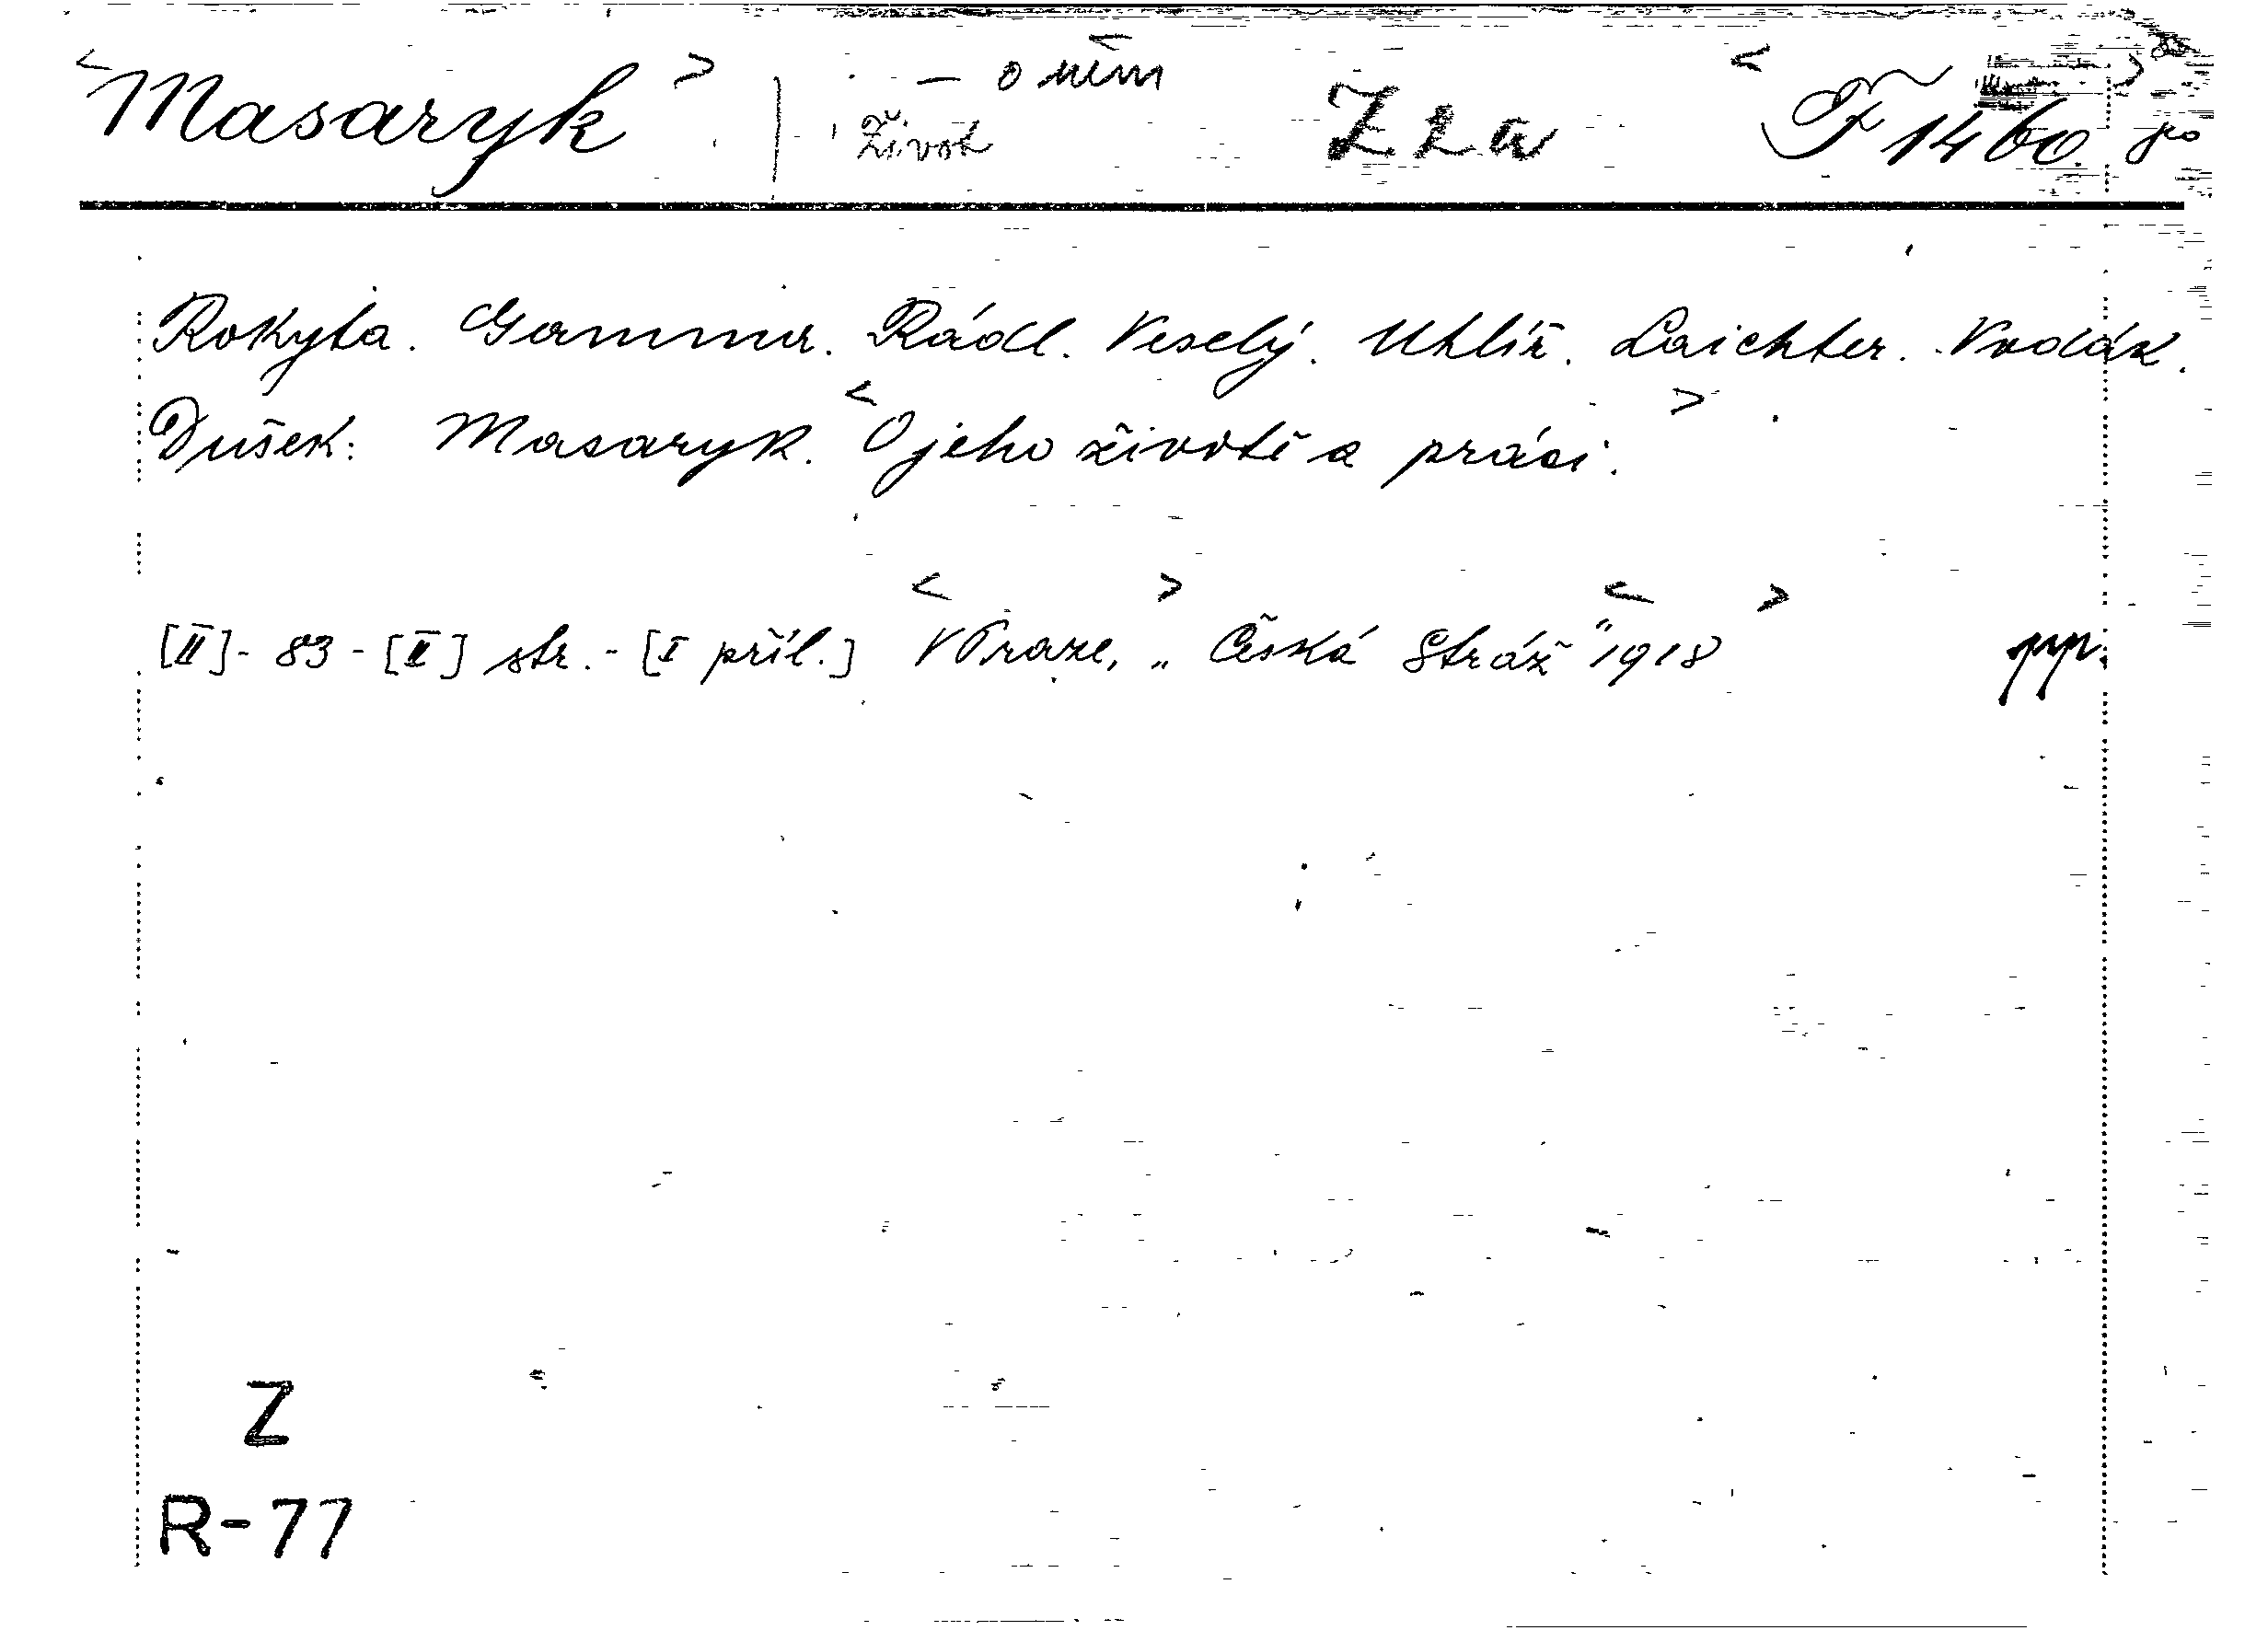 <Masaryk> | - o něm Z2a <F 1460>
život
Rokyta. Gamma. Rádl. Veselý. Uhlíř. Laichter. Vodák.
Dušek: Masaryk. <O jeho životě a práci.>
[II]- 83 - [II] str. - [I příl.] <V Praze,> „Česká Stráž" <1918>
Z
R-77